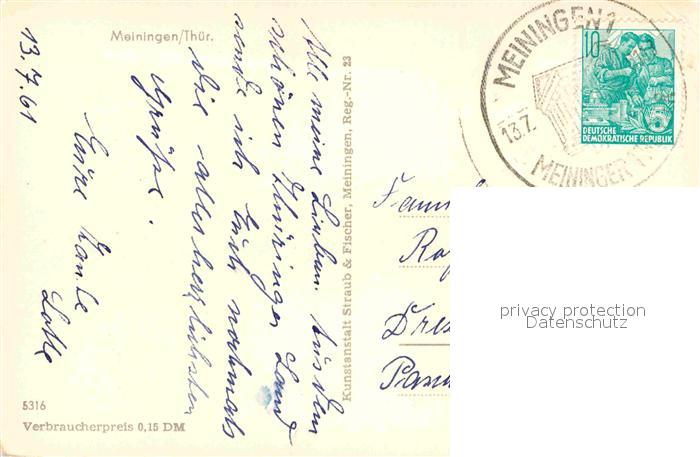 Meiningen/Thür.
13.7.61
All meine Lieben. Aus dem
schönen Thüringer Land
sende ich Euch nochmals
die allerherzlichsten
Grüße.
Eure Tante
Lotte
Kunstanstalt Straub & Fischer, Meiningen, Reg.-Nr. 23
5316
Verbraucherpreis 0,15 DM
MEININGEN 1
13.7.
MEININGER
10
DEUTSCHE
DEMOKRATISCHE REPUBLIK
Fam
Dres
privacy protection
Datenschutz